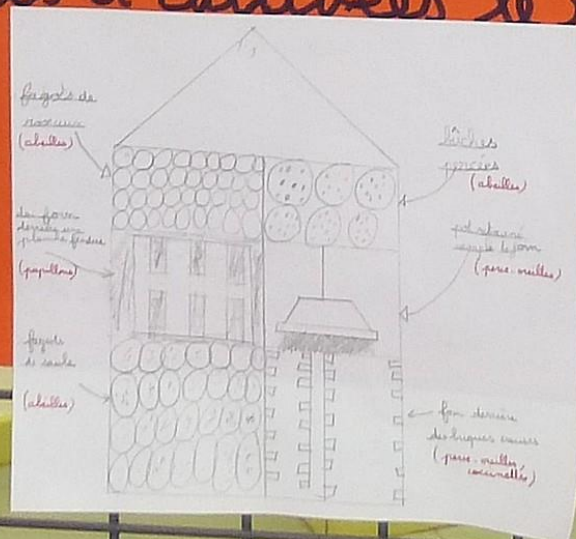 fagots de
roseaux
(abeilles)
du foin
derrière une
planche fendue
(papillons)
fagots
de saule
(abeilles)
bûches
percées
(abeilles)
pot retourné
rempli de foin
(perce-oreilles)
foin derrière
des briques creuses
(perce-oreilles,
coccinelles)